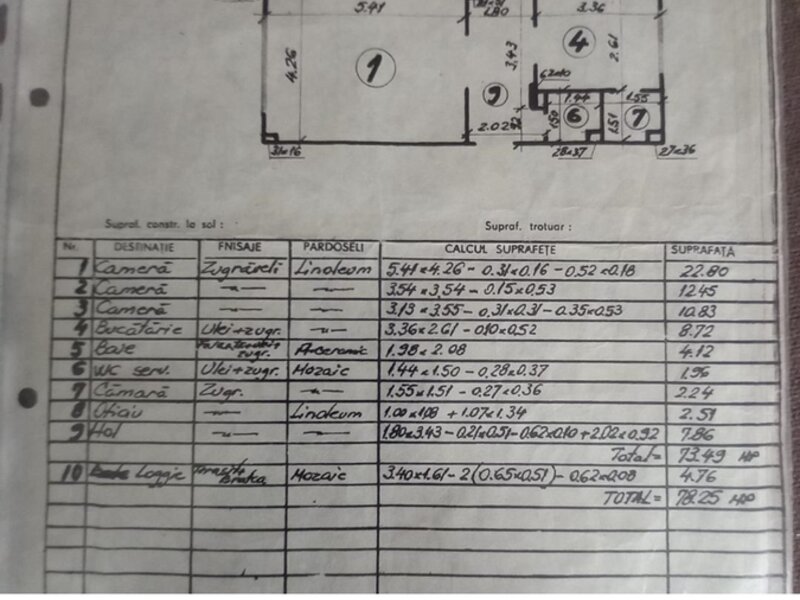 5.41
1.80
3.36
4.26
1
3.43
4
2.61
62x10
9
1.44
1.55
2.02
92
1.50
6
1.51
7
31x16
28x37
27x36
Supraf. constr. la sol :
Supraf. trotuar :
Nr. DESTINAȚIE FNISAJE PARDOSELI CALCUL SUPRAFEȚE SUPRAFAȚĂ
1 Cameră Zugrăveli Linoleum 5.41x4.26 - 0.31x0.16 - 0.52x0.18 22.80
2 Cameră -"- -"- 3.54x3.54 - 0.15x0.53 12.45
3 Cameră -"- -"- 3.13x3.55 - 0.31x0.31 - 0.35x0.53 10.83
4 Bucătărie Ulei+zugr. -"- 3.36x2.61 - 0.10x0.52 8.72
5 Baie zugr. 1.98x2.08 4.12
6 WC serv. Ulei+zugr. Mozaic 1.44x1.50 - 0.28x0.37 1.96
7 Cămară Zugr. -"- 1.55x1.51 - 0.27x0.36 2.24
8 Oficiu -"- Linoleum 1.00x1.08 + 1.07x1.34 2.51
9 Hol -"- -"- 1.80x3.43 - 0.21x0.51 - 0.62x0.10 + 2.02x0.92 7.86
Total= 73.49 mp
10 Loggie Mozaic 3.40x1.61 - 2(0.65x0.51) - 0.62x0.08 4.76
TOTAL= 78.25 mp